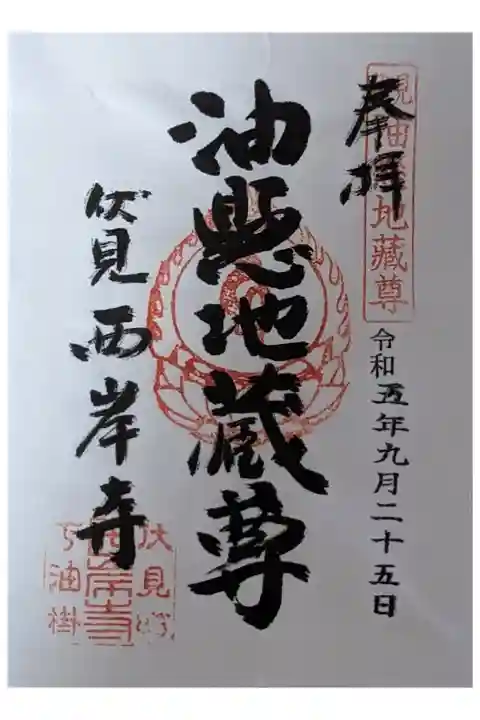 奉拝
令和五年九月二十五日
油懸地蔵尊
伏見西岸寺
地蔵尊
伏見
油掛